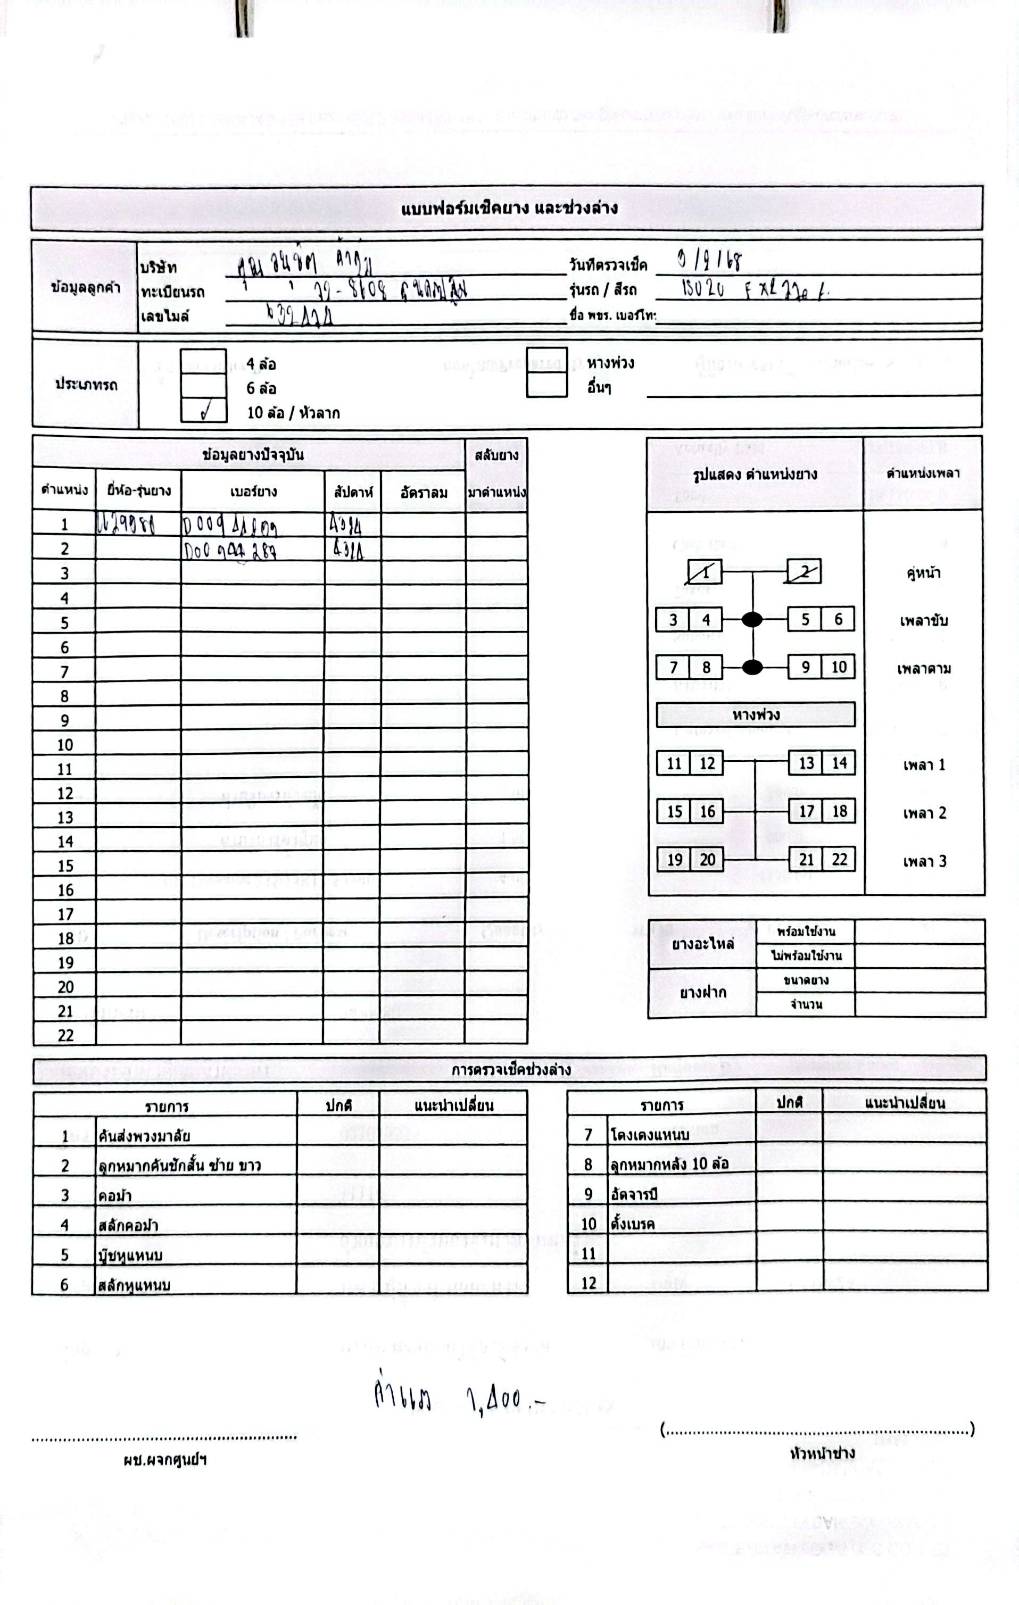 แบบฟอร์มเช็คยาง และช่วงล่าง
ข้อมูลลูกค้า
บริษัท คุณ
วันที่ตรวจเช็ค 9/9/68
ทะเบียนรถ
รุ่นรถ / สีรถ
เลขไมล์
ชื่อ พขร. เบอร์โทร
ประเภทรถ
4 ล้อ
6 ล้อ
✓ 10 ล้อ / หัวลาก
หางพ่วง
อื่นๆ
ข้อมูลยางปัจจุบัน สลับยาง
ตำแหน่ง ยี่ห้อ-รุ่นยาง เบอร์ยาง สัปดาห์ อัตราลม มาตำแหน่ง
1
2
3
4
5
6
7
8
9
10
11
12
13
14
15
16
17
18
19
20
21
22
รูปแสดง ตำแหน่งยาง ตำแหน่งเพลา
1 2 คู่หน้า
3 4 5 6 เพลาขับ
7 8 9 10 เพลาตาม
หางพ่วง
11 12 13 14 เพลา 1
15 16 17 18 เพลา 2
19 20 21 22 เพลา 3
ยางอะไหล่
พร้อมใช้งาน
ไม่พร้อมใช้งาน
ยางฝาก
ขนาดยาง
จำนวน
การตรวจเช็คช่วงล่าง
รายการ ปกติ แนะนำเปลี่ยน
1 คันส่งพวงมาลัย
2 ลูกหมากคันชักสั้น ซ้าย ขาว
3 คอม้า
4 สลักคอม้า
5 บู๊ชหูแหนบ
6 สลักหูแหนบ
รายการ ปกติ แนะนำเปลี่ยน
7 โตงเตงแหนบ
8 ลูกหมากหลัง 10 ล้อ
9 อัดจารบี
10 ตั้งเบรค
11
12
ค่าแรง 1,400.-
ผช.ผจกศูนย์ฯ
(........................................)
หัวหน้าช่าง